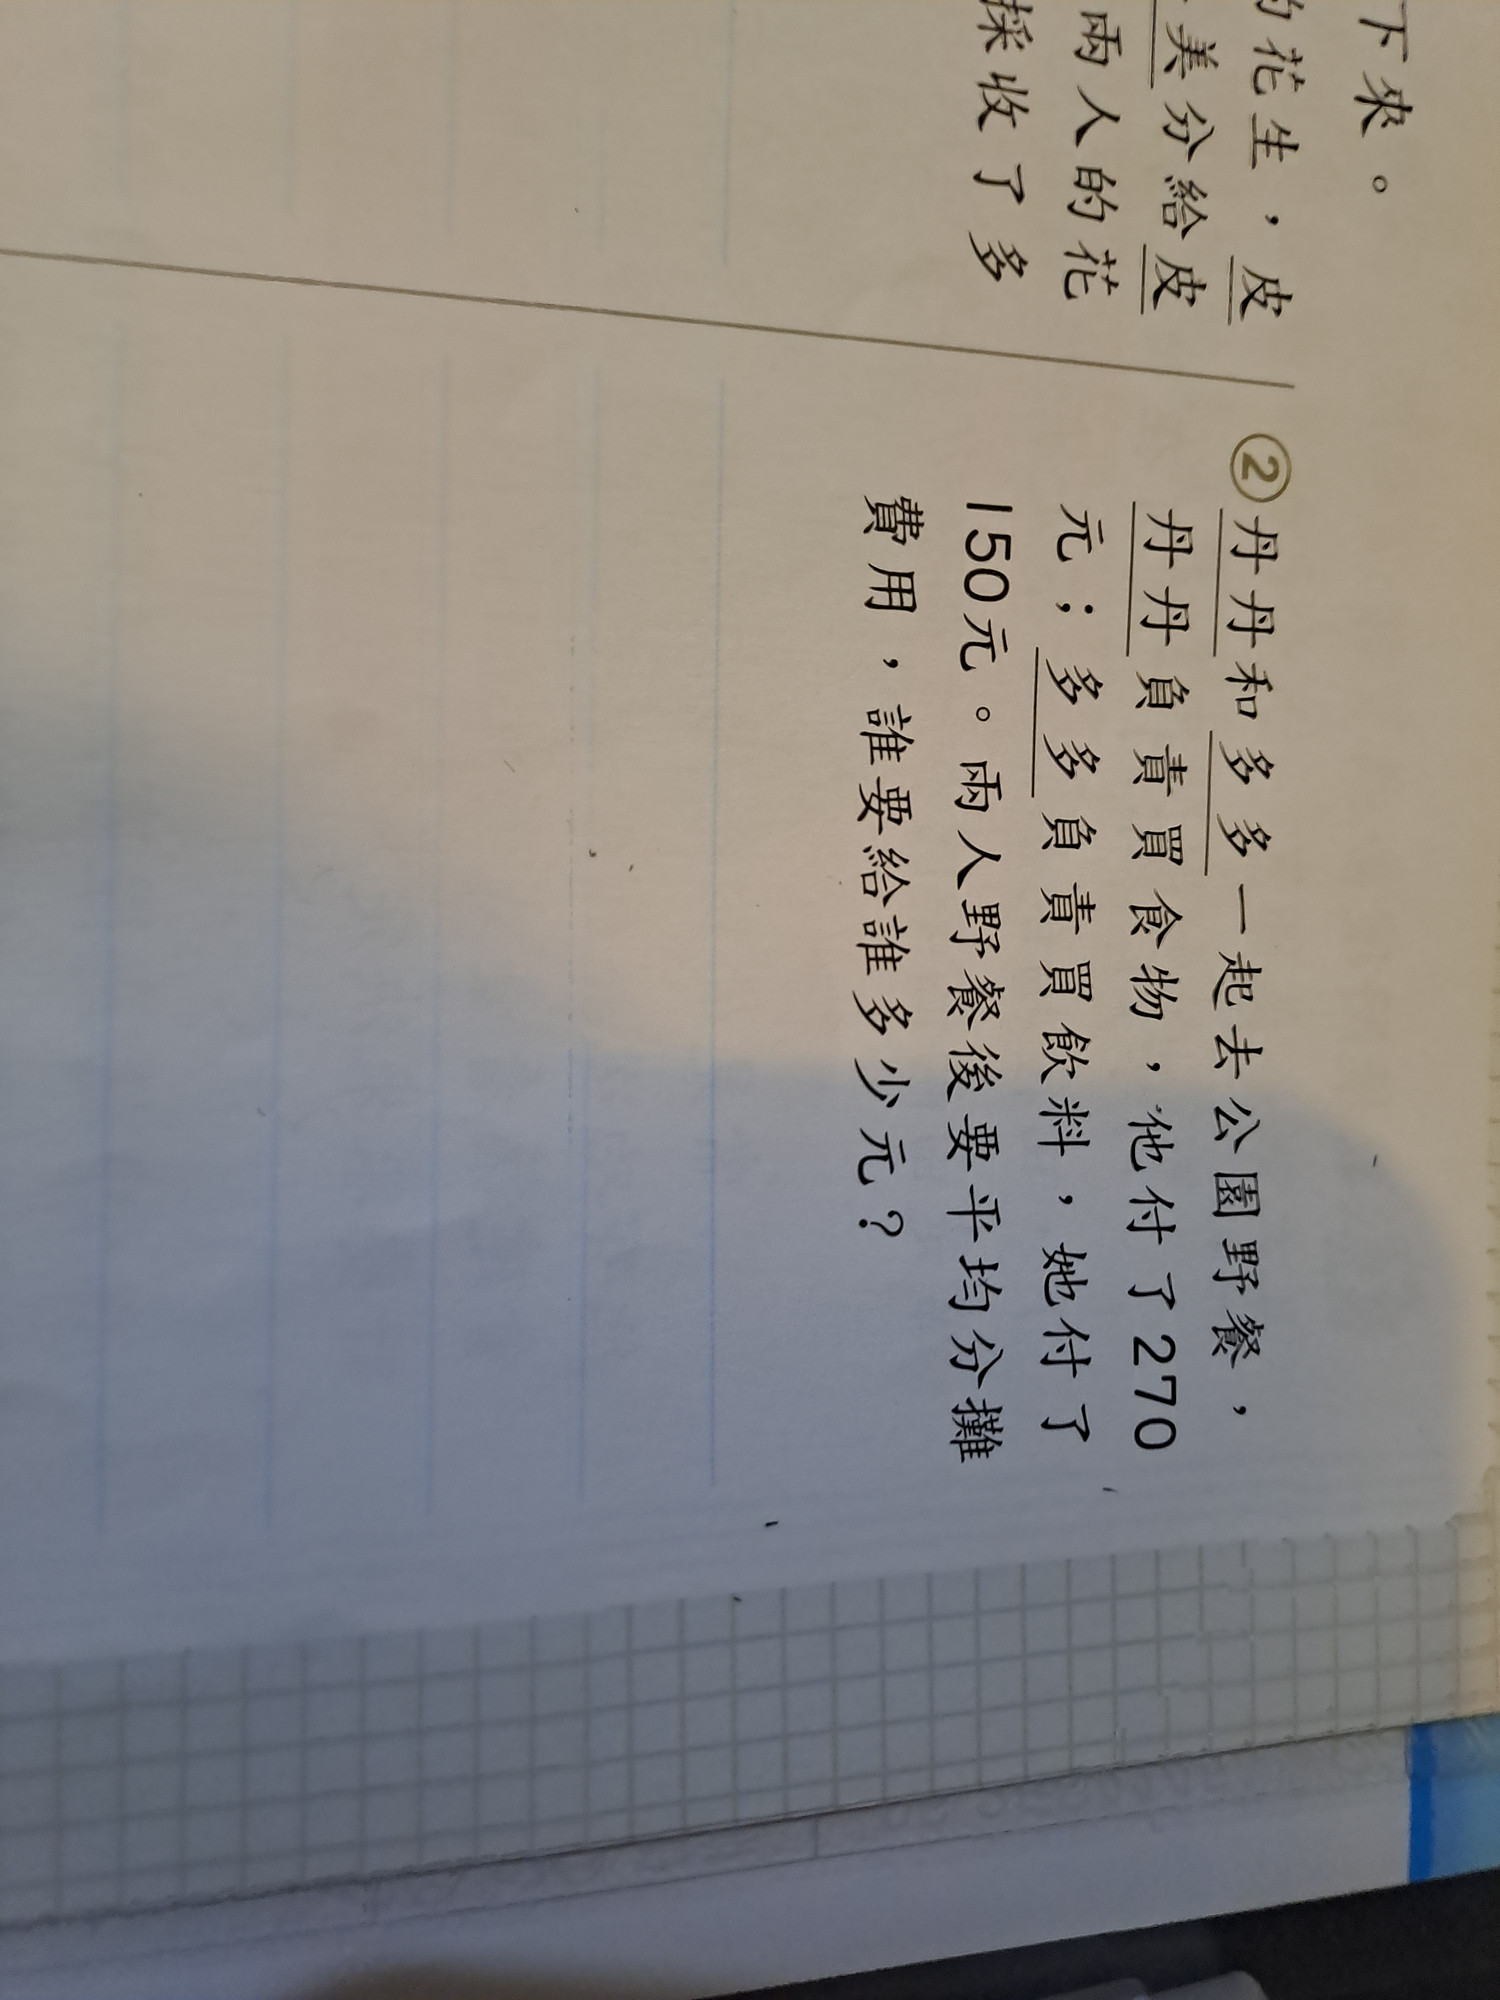 下來。
花生，皮
美分給皮
兩人的花
採收了多
②丹丹和多多一起去公園野餐，
丹丹負責買食物，他付了270
元；多多負責買飲料，她付了
150元。兩人野餐後要平均分攤
費用，誰要給誰多少元？